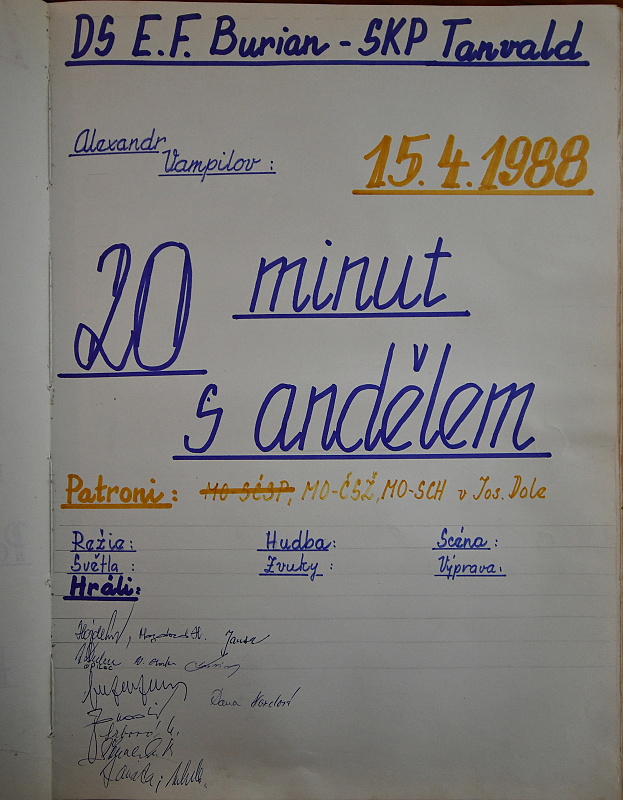 DS E.F. Burian - SKP Tanvald
Alexandr
Vampilov:
15.4.1988
20 minut
s andělem
Patroni: MO-SČSP, MO-ČSŽ, MO-SCH v Jos. Dole
Režie: Hudba: Scéna:
Světla: Zvuky: Výprava:
Hráli:
Dana